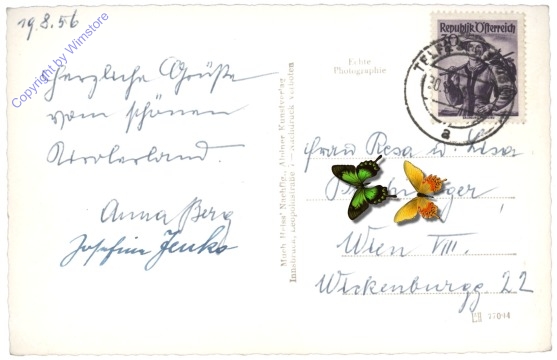 19.8.56
Copyright by Wimstore
Herzliche Grüße
vom schönen
Tirolerland.
Anna Berg
Josefine Jenko
Much Heiss' Nachflg., Alpiner Kunstverlag
Innsbruck, Leopoldstraße — Nachdruck verboten
Echte
Photographie
Republik Österreich
TELFS
a
Frau Resa u. Lisa
Wien VIII.
Wickenburgg. 22